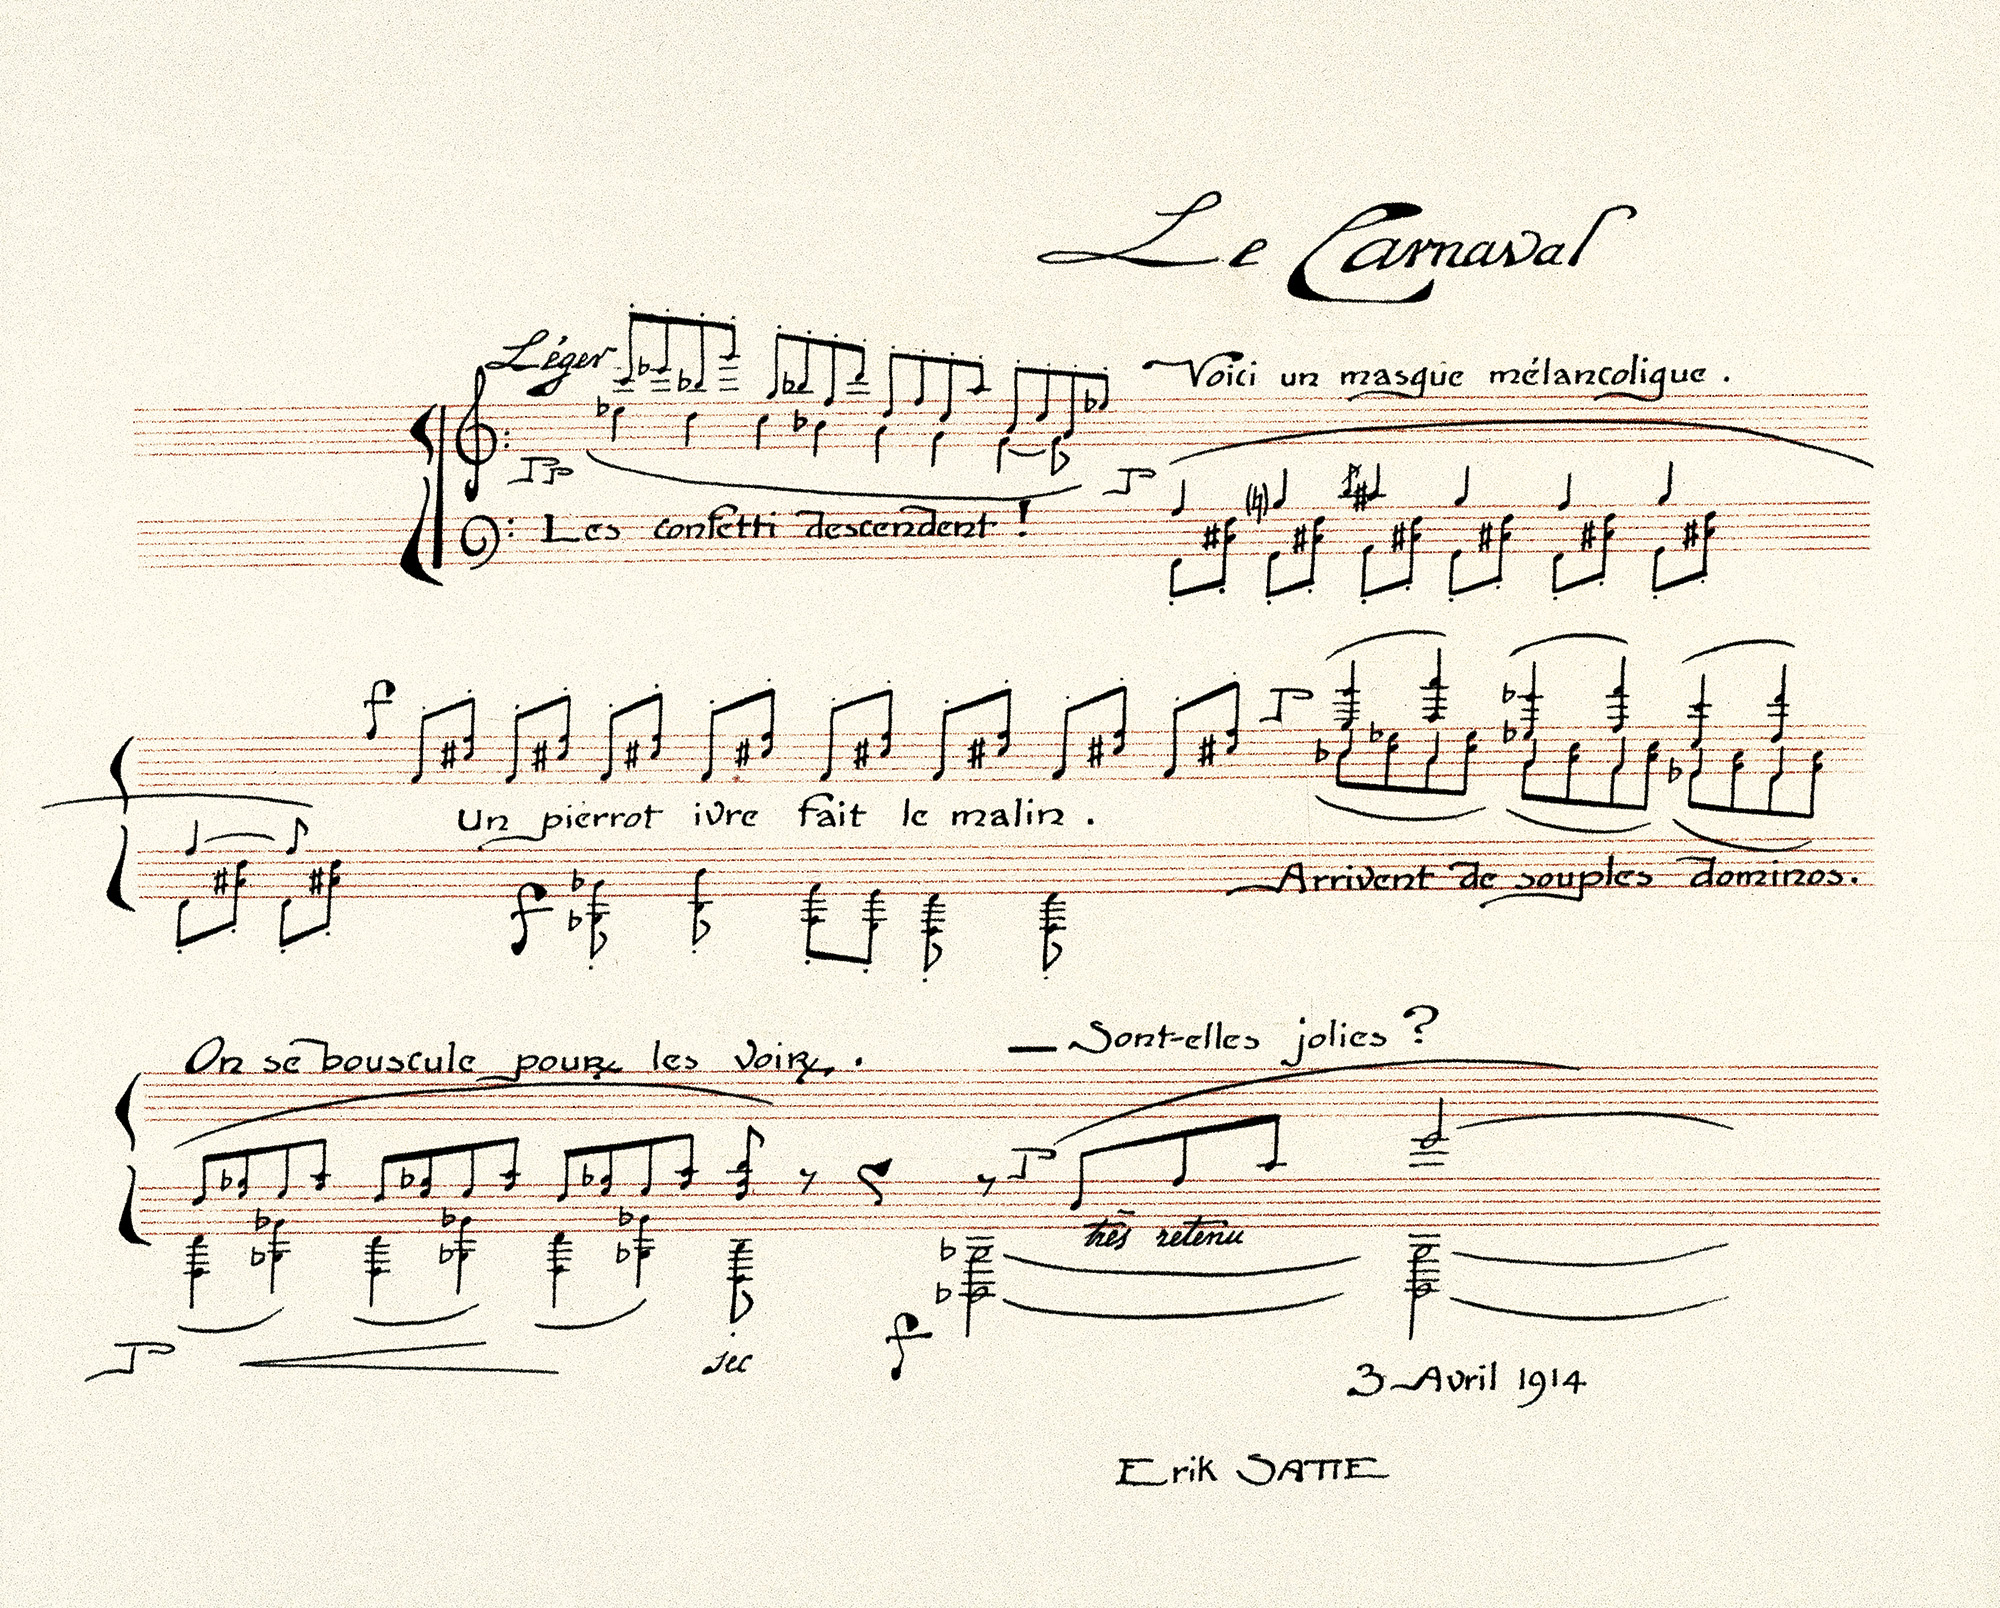 Le Carnaval
Léger
Voici un masque mélancolique.
pp
p
Les confetti descendent !
f
p
Un pierrot ivre fait le malin.
f
Arrivent de souples dominos.
On se bouscule pour les voir.
— Sont-elles jolies ?
p
très retenu
p
sec
f
3 Avril 1914
Erik SATIE